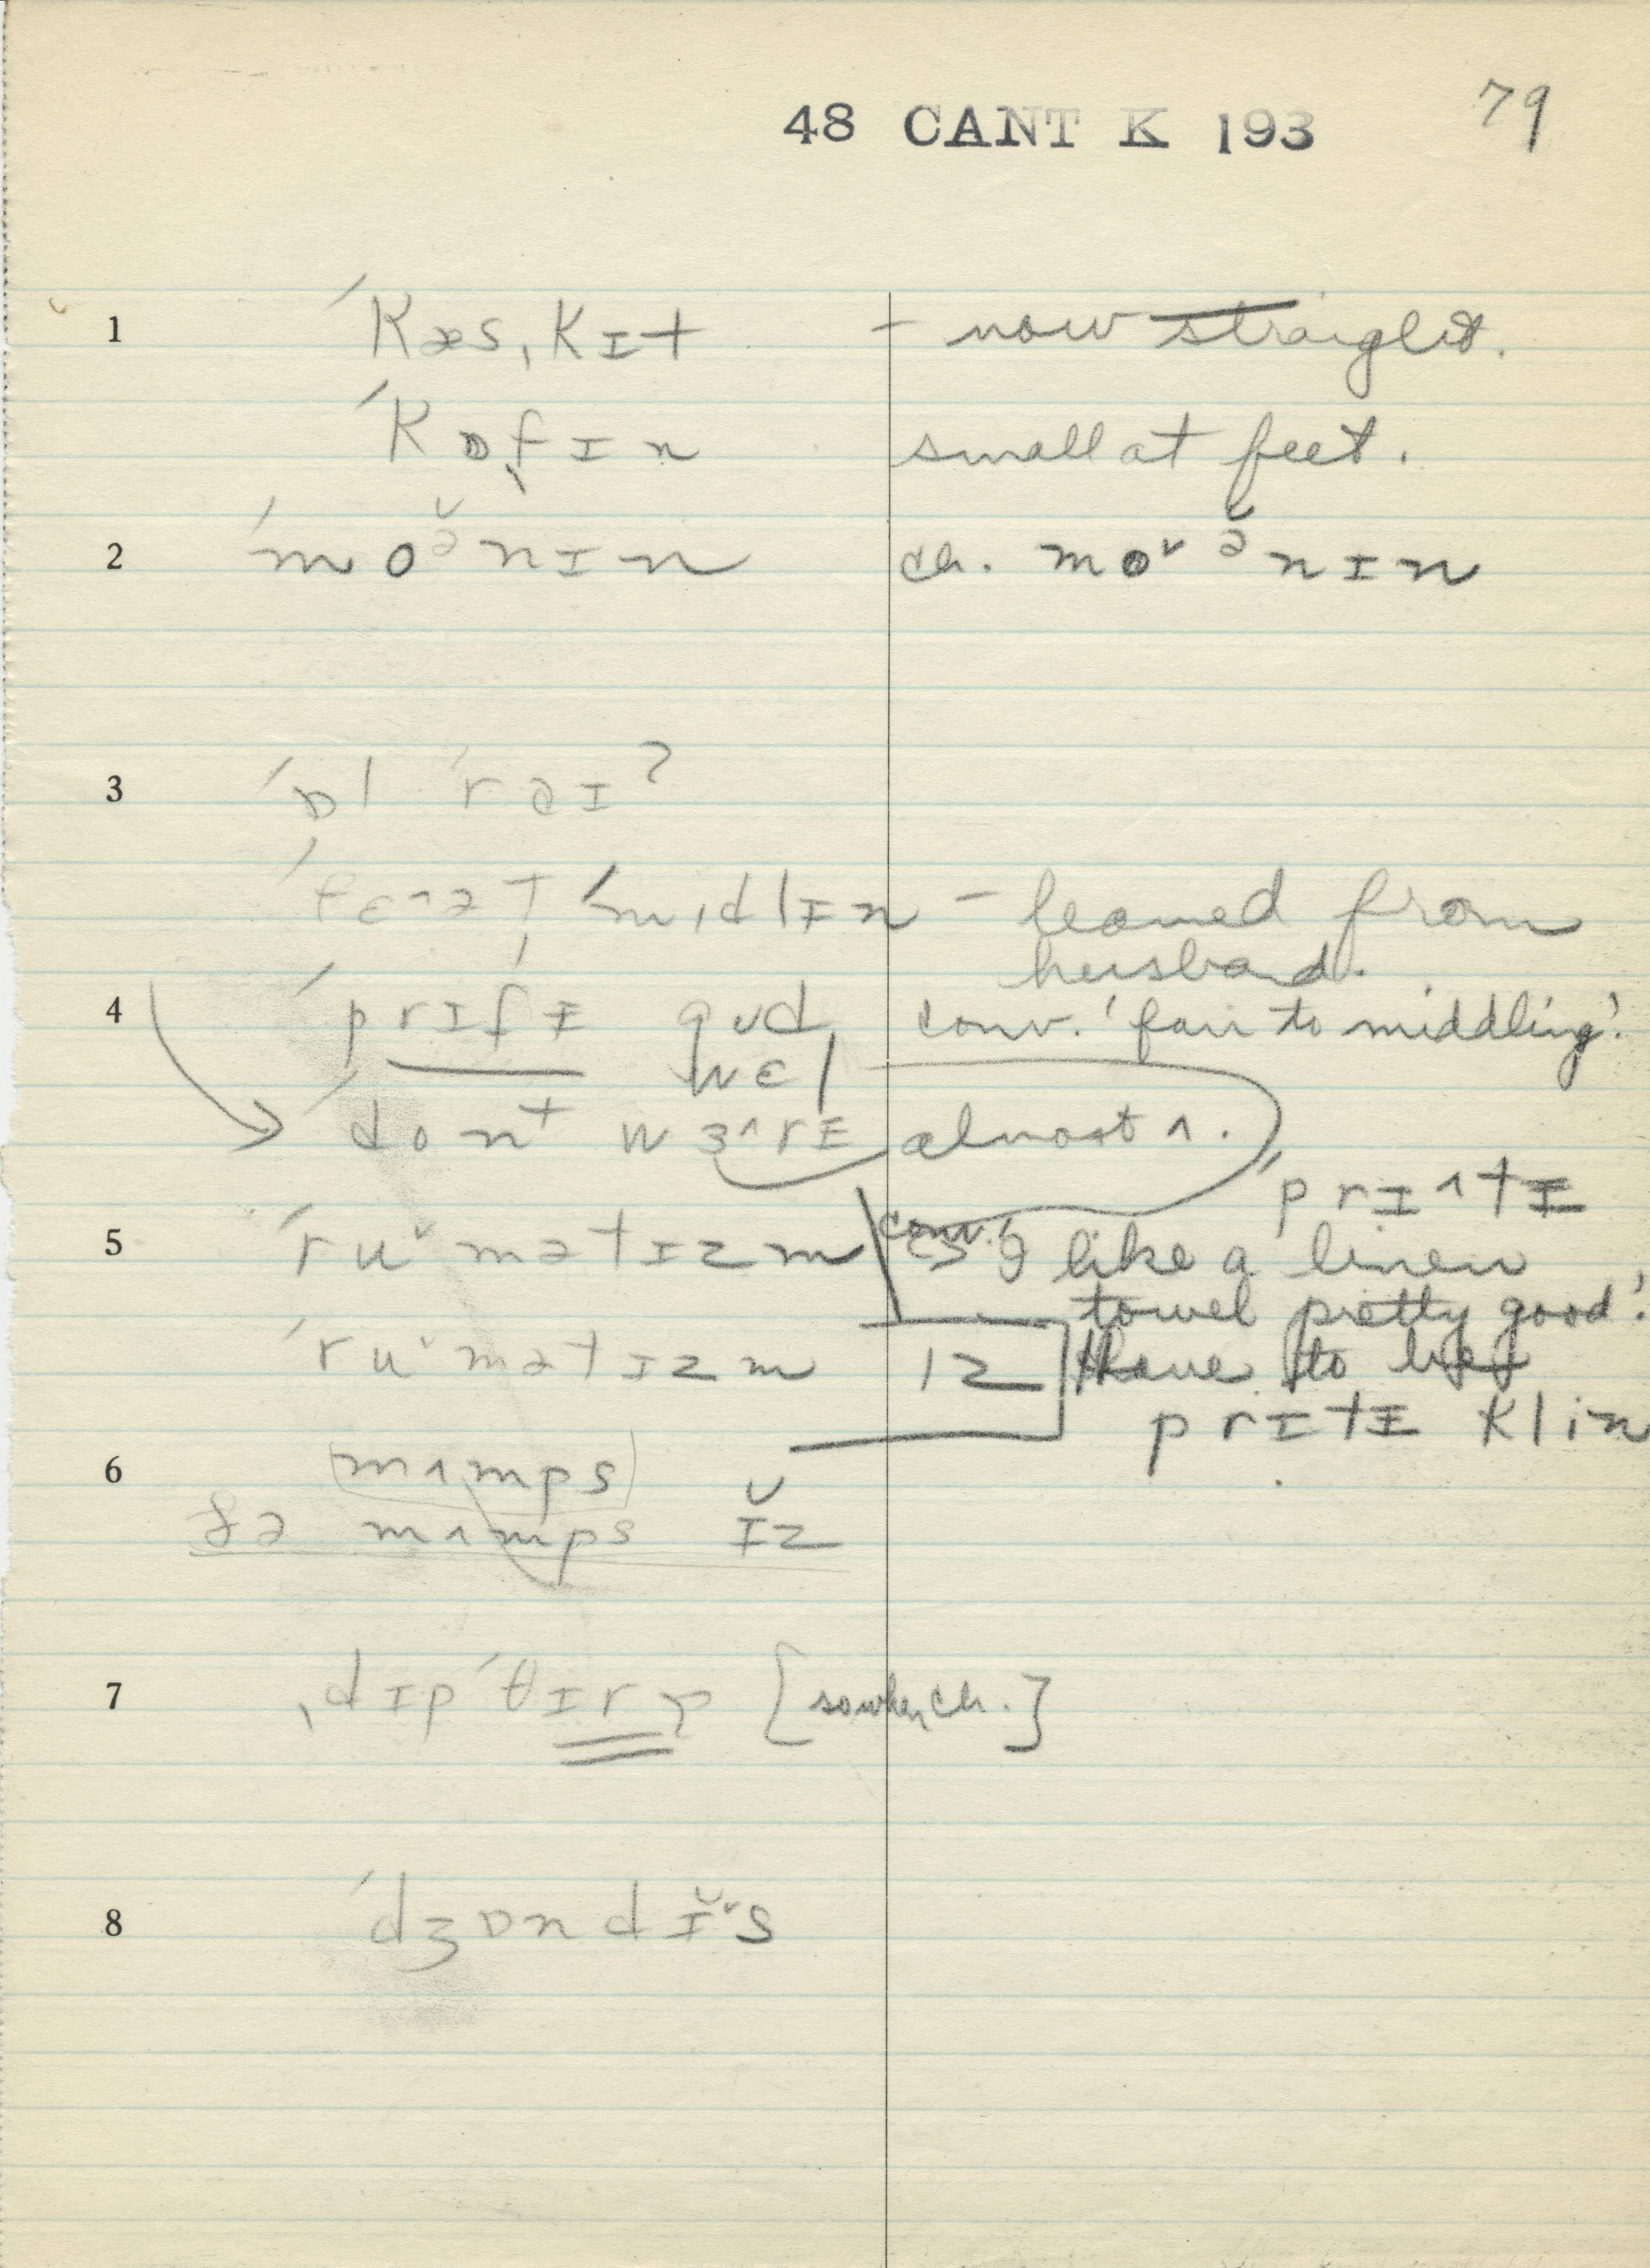 48 CANT K 193 79
1 ˈKæsˌKɪt – now straight.
ˈKɒfɪn small at feet.
2 ˈmoə̆nɪn ch. moˇə̆nɪn
3 ˈɒl ˈrəɪʔ
ˈfɛ^ətˈmɪdlɪn – learned from
husband.
4 ˈprɪtɪ gud conv. 'fair to middling'.
wɛl
ˈdont wɜ^rɪ almost ʌ.
ˈprɪ^tɪ
5 ˈruˇmətɪzm conv. 'I like a linen
towel pretty good'.
ˈruˇmətɪzm 12 have to be
prɪtɪ klin
6 (mʌmps)
ðə mʌmps ɪ̆z
7 ˌdɪpˈθɪrɪ [so when ch.]
8 ˈdʒɒndɪ̆ˇs